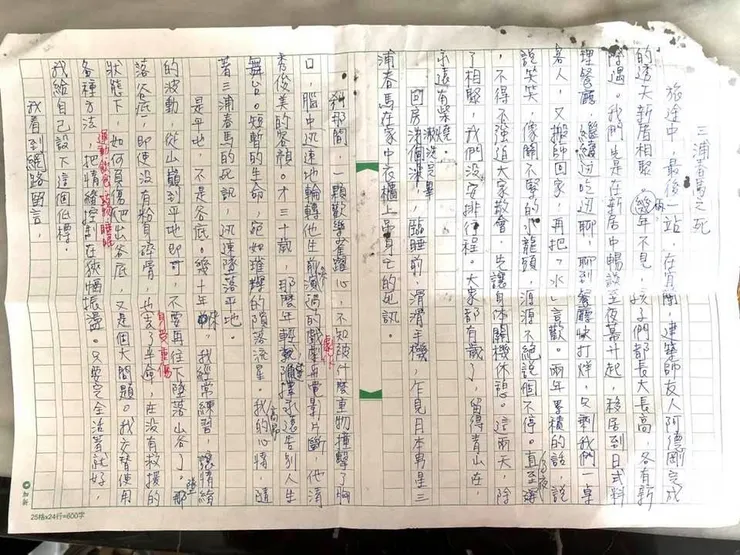 三浦春馬之死
旅途中，最後一站，在宜蘭，建築師友人阿德剛完成
的透天新厝相聚，幾年不見，孩子們都長大長高，各有新
際遇。我們先是在新居中暢談至夜幕升起，移居到日式料
理餐廳，繼續邊吃邊聊，聊到餐廳快打烊，只剩我們一桌
客人，又搬師回家，再把「水」言歡。兩年累積的話，說
說笑笑，像關不緊的水龍頭，源源不絕說個不停。直至
，不得不強迫大家散會，先讓身體關機休息。這兩天，除
了相聚，我們沒安排行程，大家都有歲了，留得青山在，
永遠有柴燒。
回房洗個澡，臨睡前，滑滑手機，乍見日本男星三
浦春馬在家中衣櫃上吊身亡的死訊。
剎那間，一顆歡樂雀躍心，不知被什麼重物撞擊了胸
口，腦中迅速地輪轉他生前演過的戲劇與電影片斷，他清
秀俊美的容顏。才三十歲，那麼年輕就選擇永遠告別人生
舞台。短暫的生命，宛如璀璨的隕落流星。我的心情，隨
著三浦春馬的死訊，迅速墜落平地。
是平地，不是谷底。幾十年來，我經常練習，讓情緒
的波動，從山巔到平地即可，不要再往下墜落山谷了。那
落谷底，即使沒有粉身碎骨，也去了半條命，在沒有救援的
身受重傷
狀態下，如何負傷爬出谷底，又是個大問題。我交替使用
運動飲食、藥物、睡眠
各種方法，把情緒控制在狹幅振盪。只要完全活著就好，
我給自己設下這個低標。
我看到網路留言，
25格x24行=600字